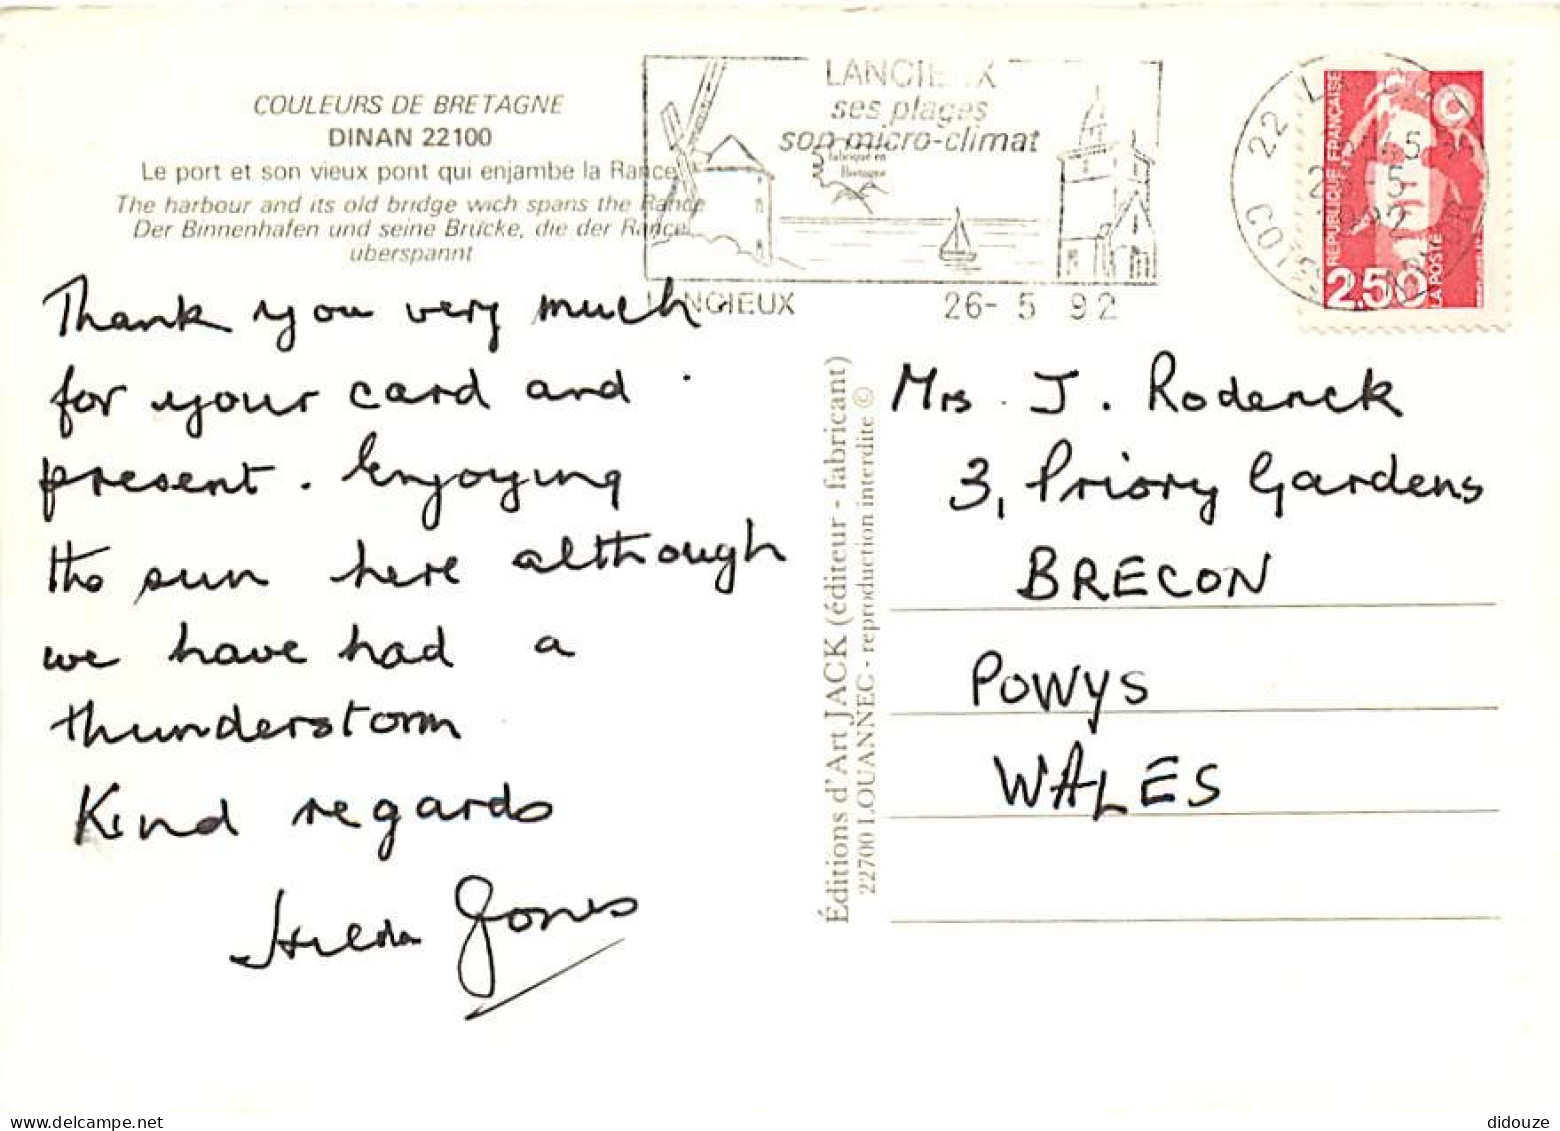 COULEURS DE BRETAGNE
DINAN 22100
Le port et son vieux pont qui enjambe la Rance
The harbour and its old bridge wich spans the Rance
Der Binnenhafen und seine Brücke, die der Rance
uberspannt
LANCIEUX
ses plages
son micro-climat
fabriqué en
Bretagne
LANCIEUX 26-5 92
RÉPUBLIQUE FRANÇAISE
2,50
LA POSTE
Thank you very much
for your card and
present. Enjoying
the sun here although
we have had a
thunderstorm
Kind regards
Hilda Jones
Éditions d'Art JACK (éditeur - fabricant)
22700 LOUANNEC - reproduction interdite ©
Mrs. J. Roderick
3, Priory Gardens
BRECON
POWYS
WALES
didouze